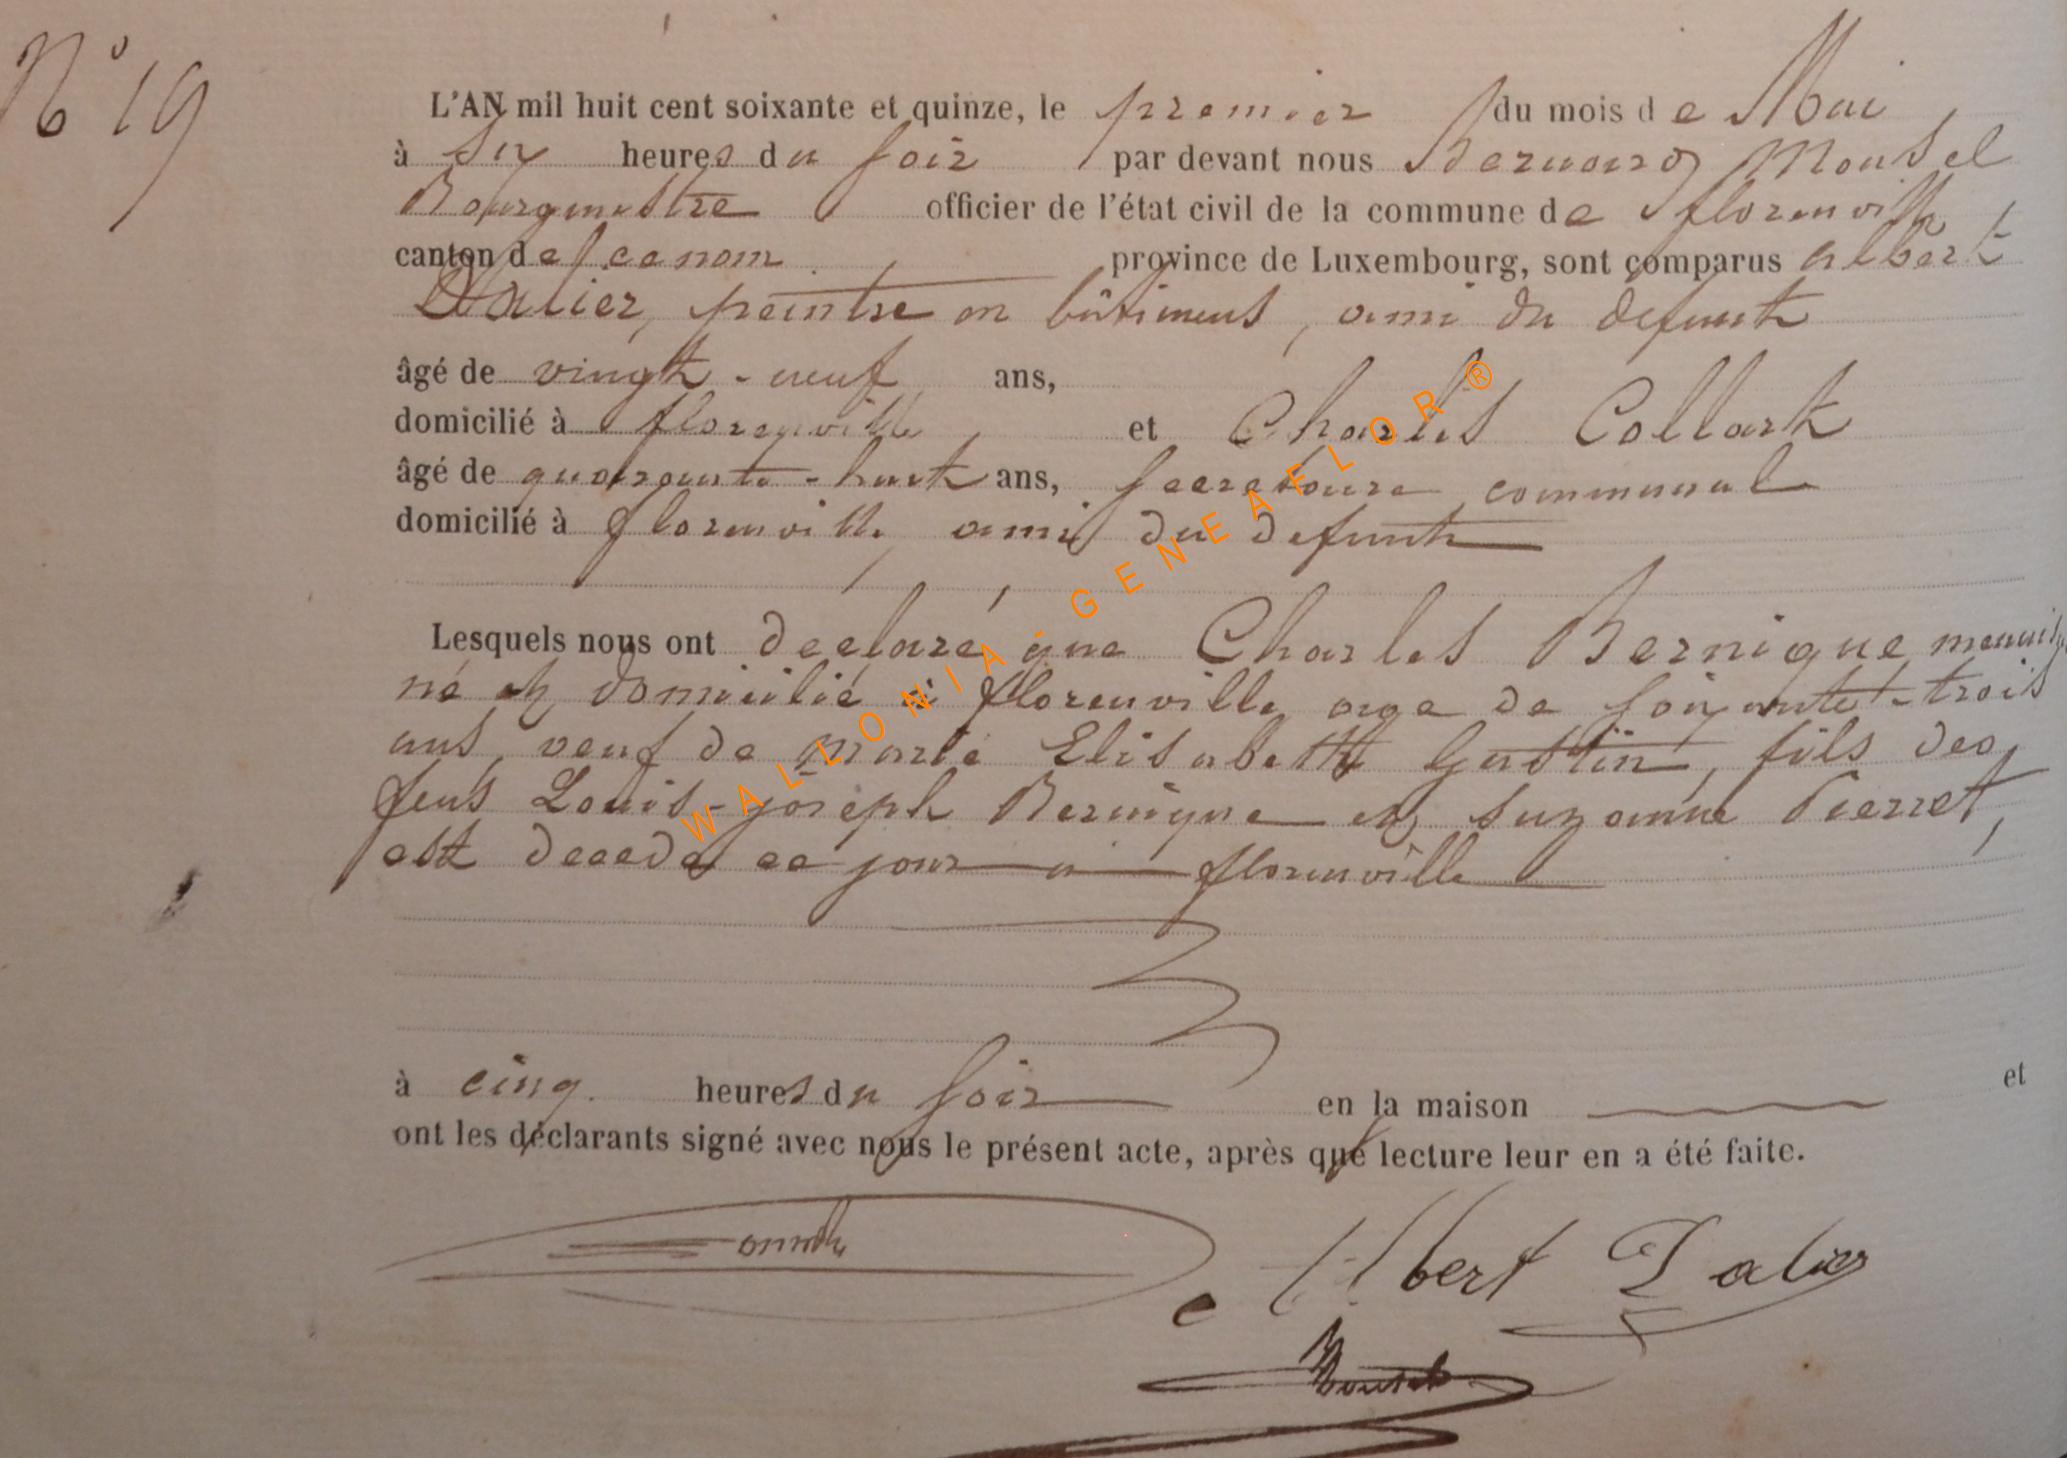 N° 19
L'AN mil huit cent soixante et quinze, le premier du mois de Mai
à six heures du soir par devant nous Bernard Mousel
Bourgmestre officier de l'état civil de la commune de florenville
canton de ce nom province de Luxembourg, sont comparus albert
Dalier, peintre en bâtiments, ami du defunt
âgé de vingt-neuf ans,
domicilié à florenville et Charles Collart
âgé de quarante-huit ans, secretaire communal
domicilié à florenville, ami du defunt
Lesquels nous ont declaré que Charles Bernique menuisier
né et domicilié à florenville age de soixante-trois
ans, veuf de marie Elisabeth Gustin, fils des
feus Louis-joseph Bernique et suzanne Pierret,
est decedé ce jour a florenville
à cinq heures du soir en la maison et
ont les déclarants signé avec nous le présent acte, après que lecture leur en a été faite.
Albert Dalier
Mousel
WALLONIA GENEAFLOR®